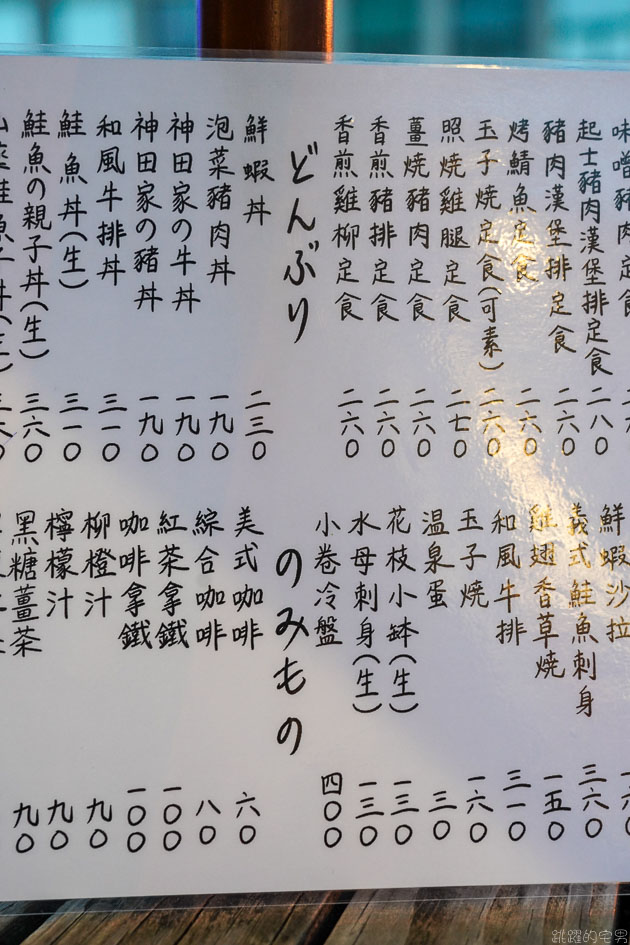 起士豬肉漢堡排定食 二八〇
豬肉漢堡排定食 二六〇
烤鯖魚定食 二六〇
玉子燒定食(可素) 二六〇
照燒雞腿定食 二七〇
薑燒豬肉定食 二六〇
香煎豬排定食 二六〇
香煎雞柳定食 二六〇
どんぶり
鮮蝦丼 二三〇
泡菜豬肉丼 一九〇
神田家の牛丼 一九〇
神田家の豬丼 一九〇
和風牛排丼 三一〇
鮭魚丼(生) 三一〇
鮭魚の親子丼(生) 三六〇
鮮蝦沙拉
義式鮭魚刺身 三六〇
雞翅香草燒 一五〇
和風牛排 三一〇
玉子燒 一六〇
溫泉蛋 三〇
花枝小缽(生) 一三〇
水母刺身(生) 一三〇
小卷冷盤 四〇〇
のみもの
美式咖啡 六〇
綜合咖啡 八〇
紅茶拿鐵 一〇〇
咖啡拿鐵 一〇〇
柳橙汁 九〇
檸檬汁 九〇
黑糖薑茶 九〇
跳躍的宅男